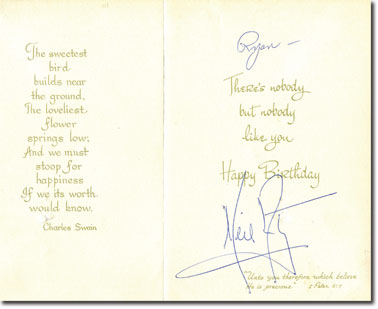 The sweetest
bird
builds near
the ground,
The loveliest
flower
springs low;
And we must
stoop for
happiness
If we its worth
would know.
Charles Swain
Ryan –
There's nobody
but nobody
like you
Happy Birthday
Neil
"Unto you therefore which believe
He is precious" I Peter 2:7